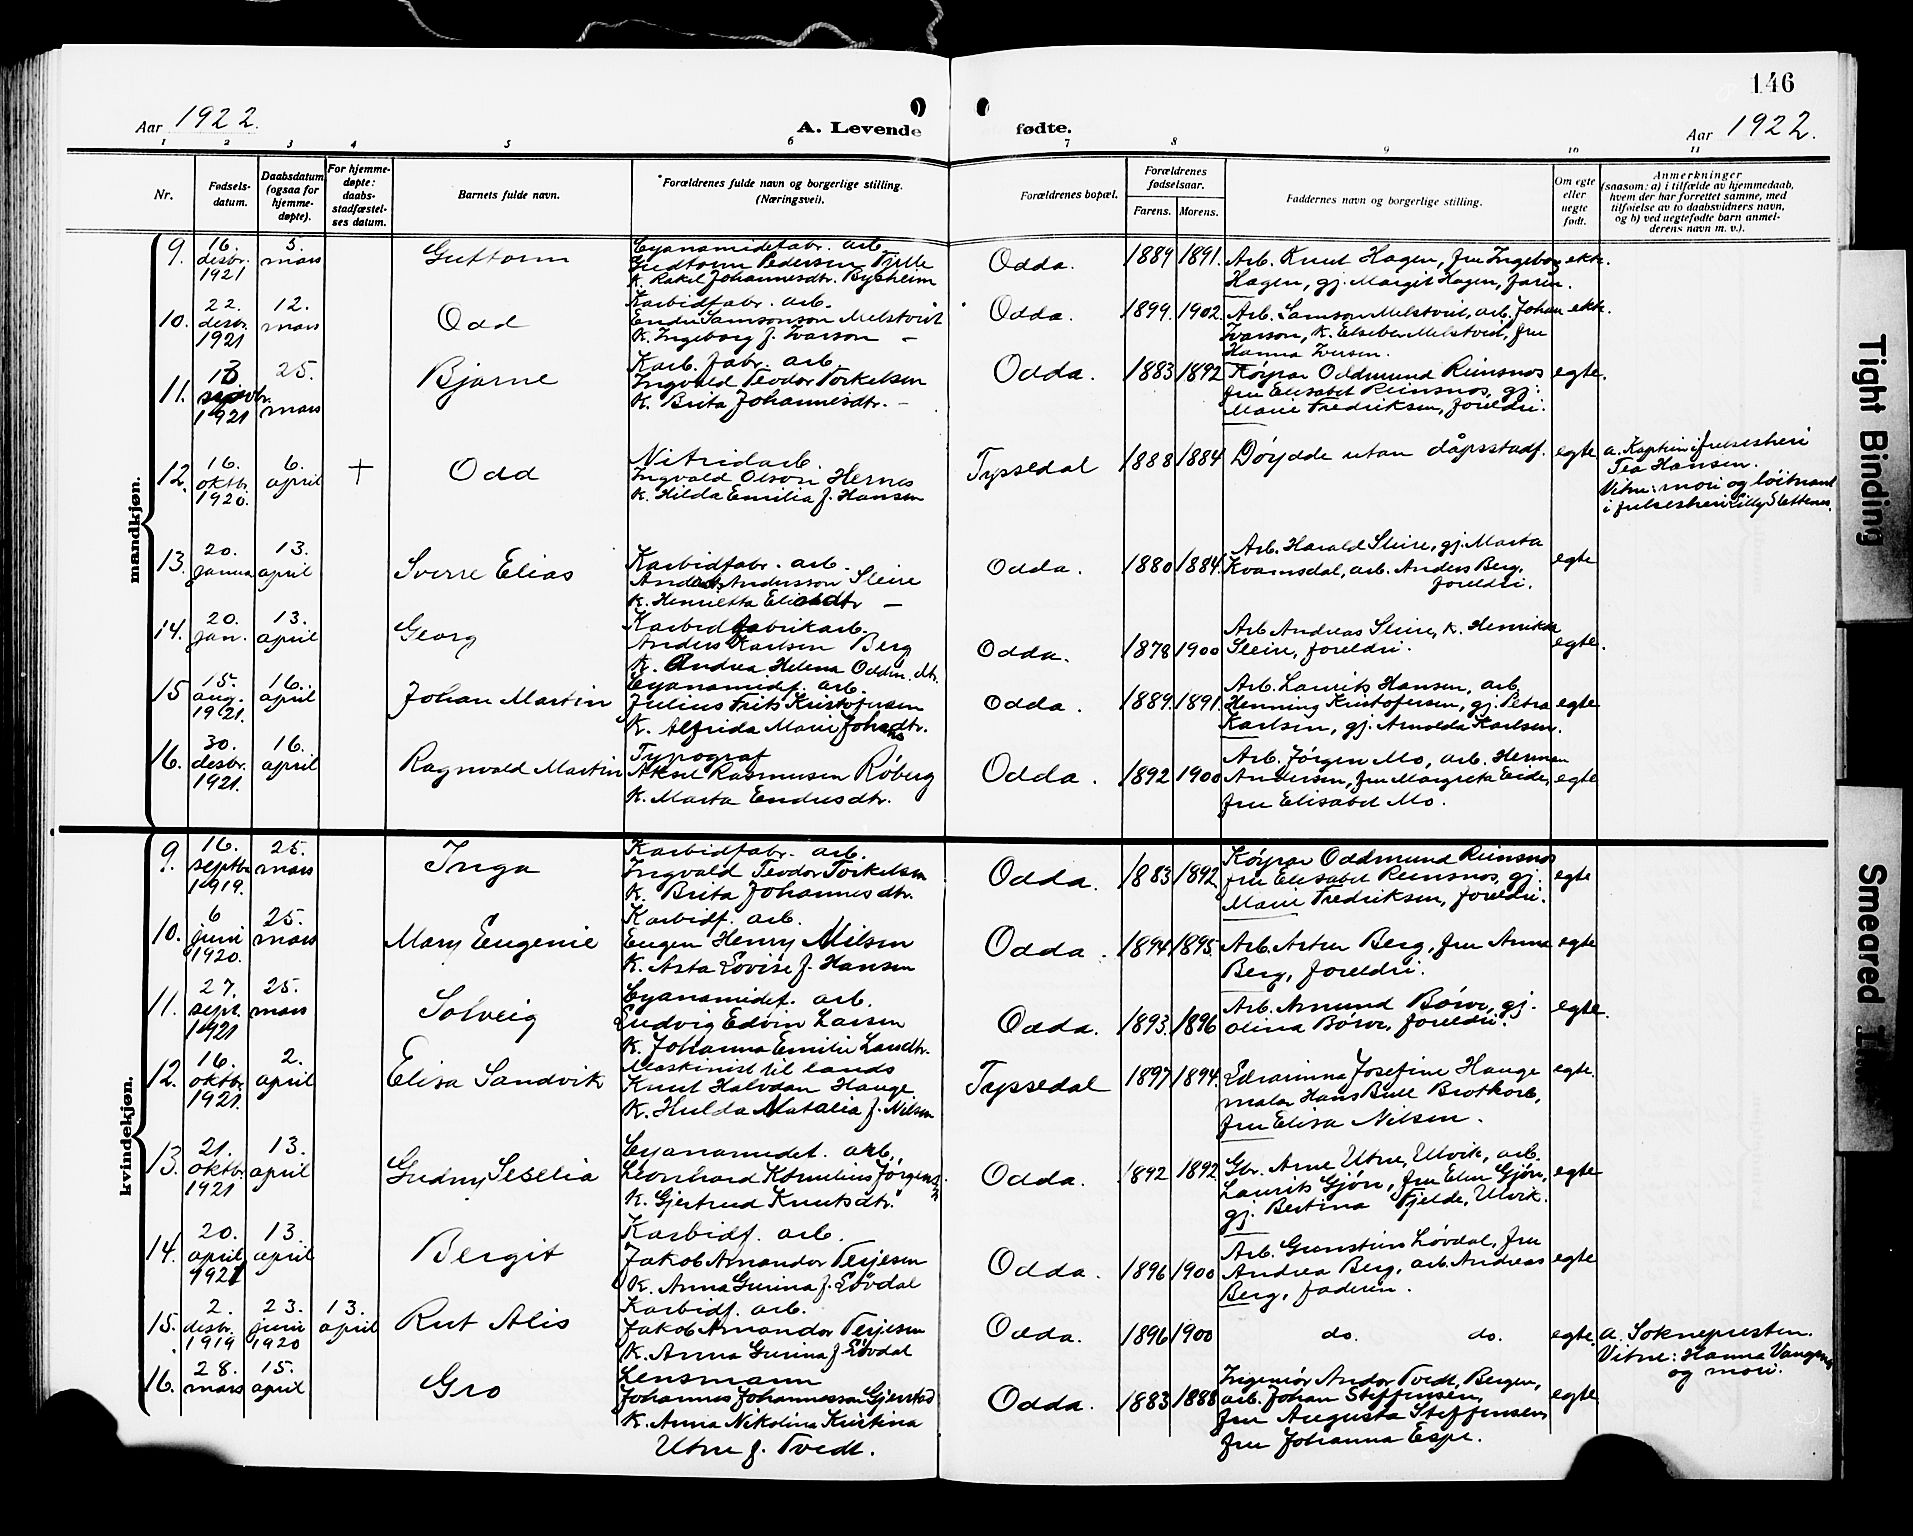 146
Aar 1922.
A. Levende fødte.
Aar 1922.
1 2 3 4 5 6 7 8 9 10 11
Nr.
Fødsels-
datum.
Daabsdatum
(ogsaa for
hjemme-
døpte).
For hjemme-
døpte:
daabs-
stadfæstel-
ses datum.
Barnets fulde navn.
Forældrenes fulde navn og borgerlige stilling.
(Næringsvei).
Forældrenes bopæl.
Forældrenes
fødselsaar.
Farens. Morens.
Faddernes navn og borgerlige stilling.
Om egte
eller
uegte
født.
Anmerkninger
(saasom: a) i tilfælde av hjemmedaab,
hvem der har forrettet samme, med
tilføielse av to daabsvidners navn,
og b) ved uegtefødte barn anmel-
derens navn m. v.).
mandkjøn.
9.
16.
desbr.
1921
5.
mars
Guttorm
Cyanamidfabr. arb.
Gudtorm Pedersen Tjelle
K. Rakel Johannesdtr. Bysheim
Odda.
1889 1891.
Arb. Knut Hagen, fru Ingeborg
Hagen, gj. Margit Hagen, faren.
ekte.
10.
22.
desbr.
1921
12.
mars
Odd
Karbidfabr. arb.
Endre Samsonson Melstveit
K. Ingeborg f. Ivarson –
Odda.
1899. 1902.
Arb. Samson Melstveit, arb. Johan
Ivarson, K. Elseber Melstveit, fru
Hanna Iversen.
ekte.
11.
18
1921
25.
mars
Bjarne
Karb. fabr. arb.
Ingvald Teodor Torkelsen
K. Brita Johannesdtr. –
Odda.
1883 1892
Køyrar Oddmund Reinsnos
fru Elisabet Reinsnos, gj.
Marie Fredriksen, foreldri.
egte.
12.
16.
oktbr.
1920.
6.
april
+
Odd
Nitridarb.
Ingvald Olson Hernes
K. Hilda Emilia f. Hansen
Tyssedal
1888 1884
Døydde utan dåpsstadf.
egte
a. Kaptein i frelsesheri
Tea Hansen.
Vitne: mori og löitnant
i frelsesheri Lilly Slettenes.
13.
20.
janua
13.
april
Sverre Elias
Karbidfabr. arb.
Andreas Andersson Sleire
K. Henrietta Eliasdtr –
Odda.
1880 1884.
Arb. Harald Sleire, gj. Marta
Kvamsdal, arb. Anders Berg,
foreldri.
egte
14.
20.
jan.
13.
april
Georg
Karbidfabrikarb.
Anders Karlsen Berg
K. Andrea Helena Oddm. dtr.
Odda.
1878 1900
Arb Andreas Sleire, K. Henrikka
Sleire, foreldri.
egte.
15
15.
aug.
1921.
16.
april
Johan Martin
Cyanamidf. arb.
Julius Frits Kristofersen
K. Alfrida Marie Johansdtr.
Odda.
1889. 1891.
Arb. Laurits Hansen, arb.
Henning Kristofersen, gj. Petra
Karlsen, gj. Arnolda Karlsen.
egte
16.
30.
desbr.
1921.
16.
april
Ragnvald Martin
Typograf
Aksel Rasmusen Røberg
K. Marta Endresdtr.
Odda.
1892 1900
Arb. Jørgen Mo, arb. Herman
Andersen, fru Margreta Eide,
fru Elisabet Mo.
egte
kvindekjøn.
9.
16.
septbr.
1919.
25.
mars
Inga
Karbidfabr. arb.
Ingvald Teodor Torkelsen
K. Brita Johannesdtr.
Odda.
1883 1892
Køyrar Oddmund Reinsnos
fru Elisabet Reinsnos, gj.
Marie Fredriksen, foreldri.
egte
10.
6
juni
1920.
25.
mars
Mary Eugenie
Karbidf. arb.
Eugen Henry Nilsen
K. Asta Lovise f. Hansen
Odda.
1894 1895.
Arb. Artur Berg, fru Anna
Berg, foreldri.
egte
11.
27.
sept.
1921
25.
mars
Solveig
Cyanamidf. arb.
Ludvig Edvin Larsen
K. Johanna Emilie Larsdtr.
Odda.
1893. 1896
Arb. Amund Børve, gj.
Olina Børve, foreldri.
egte.
12.
16.
oktbr.
1921.
2.
april
Elisa Sandvik
Maskinist til lands
Knut Halvdan Hauge
K. Hulda Natalia f. Nilsen
Tyssedal
1897 1894.
Edvarinna Josefine Hauge
malar Hans Bull Brotkorb,
fru Elisa Nilsen.
egte.
13.
21.
oktbr.
1921
13.
april
Gudny Seselia
Cyanamidf. arb.
Leonhard Kornilius Jørgensen
K. Gjertrud Knutsdtr.
Odda.
1892 1892
Gbr. Arne Utne, Ulvik, arb.
Laurits Gjøn, fru Elin Gjøn,
gj. Bertina Fjelde, Ulvik.
egte
14.
20.
april
1921
13.
april
Bergit
Karbidf. arb.
Jakob Amandor Terjesen
K. Anna Gurina f. Løvdal
Odda.
1896 1900
Arb. Grunstein Løvdal, fru
Andrea Berg, arb. Andreas
Berg, faderen.
egte
15.
2.
desbr.
1919
23.
juni
1920
13.
april
Rut Alis
Karbidf. arb.
Jakob Amandor Terjesen
K. Anna Gurina f. Løvdal
Odda.
1896 1900
do. do.
egte.
a. Soknepresten.
Vitne: Hanna Vangenes
og mori.
16.
28.
mars
15.
april
Gro
Lensmann
Johannes Johannesson Gjerstad
K. Anna Nikolina Kristina
Utne f. Tvedt.
Odda.
1883 1888
Ingeniør Andor Tvedt, Bergen,
arb. Johan Steffensen,
fru Augusta Steffensen,
fru Johanna Espe.
egte
Tight Binding
Smeared